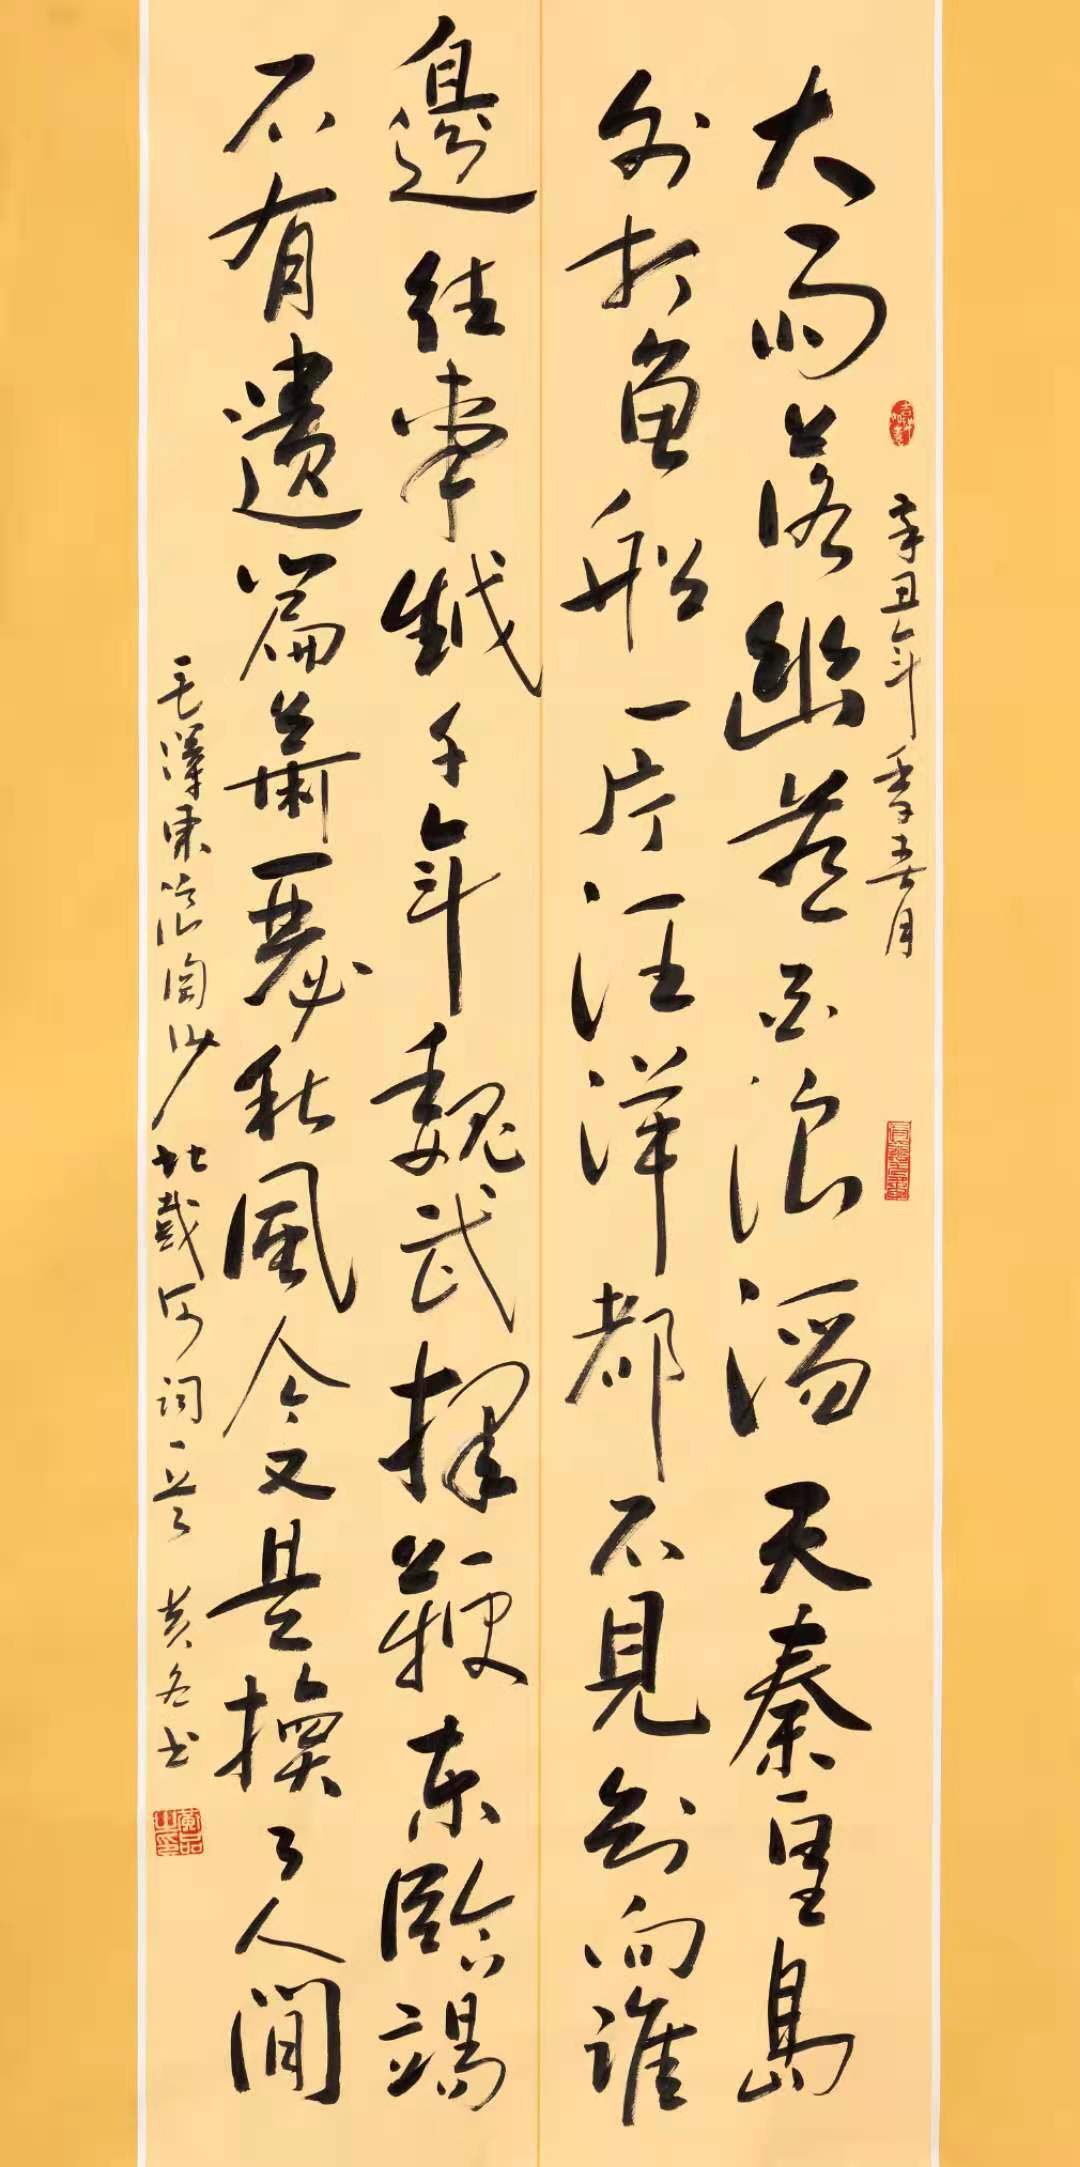 辛丑年季春月
大雨落幽燕白浪滔天秦皇島
外打鱼船一片汪洋都不見知向誰
邊往事越千年魏武揮鞭东臨碣
石有遺篇蕭瑟秋風今又是換了人間
毛澤東浪淘沙北戴河詞一首 黄书
黄品之印